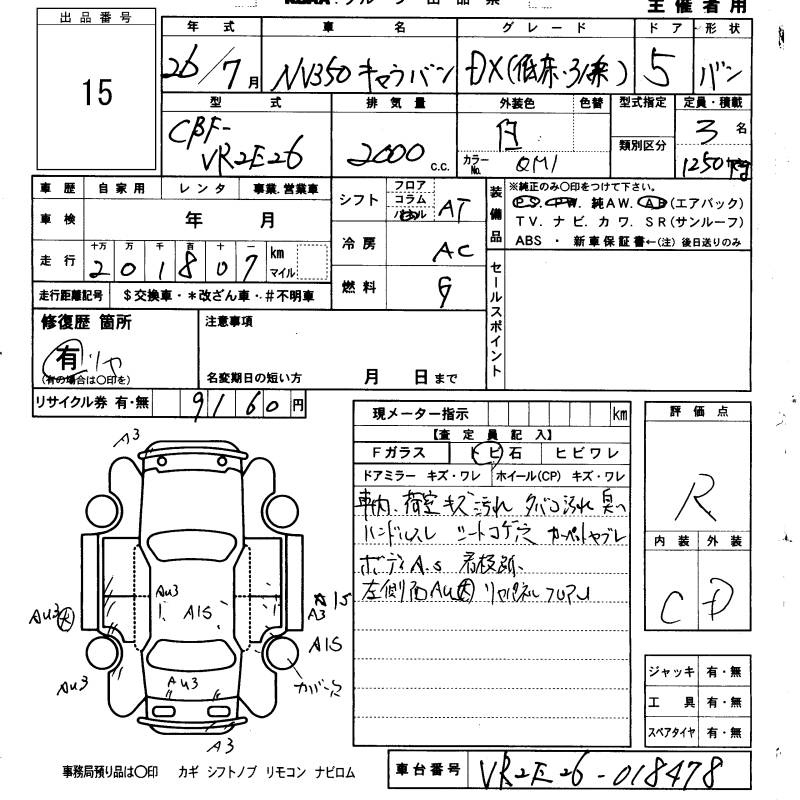 主催者用
出品番号
15
年式 車名 グレード ドア 形状
26/7月 NV350 キャラバン DX(低床・3/6乗) 5 バン
型式 排気量 外装色 色替 型式指定 定員・積載
CBF-VR2E26 2000 c.c. 白 カラーNo. QM1 類別区分 3名 1250kg
車歴 自家用 レンタ 事業.営業車
車検 年 月
走行 十万 万 千 百 十 一 km マイル
201807
走行距離記号 $交換車・*改ざん車・#不明車
シフト フロア コラム AT
冷房 AC
燃料 G
装備品
※純正のみ○印をつけて下さい。
PS. PW. 純AW. AB(エアバック)
TV. ナビ. カワ. SR(サンルーフ)
ABS ・ 新車保証書←(注)後日送りのみ
セールスポイント
修復歴 箇所
有 リヤ
(有の場合は○印を)
注意事項
名変期日の短い方 月 日まで
リサイクル券 有・無 9160円
現メーター指示 km
【査定員記入】
Fガラス トビ石 ヒビワレ
ドアミラー キズ・ワレ ホイール(CP) キズ・ワレ
車内、荷室キズ汚れ タバコ汚れ 臭い
ハンドルスレ シートコゲ穴 カーペットヤブレ
ボディA.S 看板跡、
左側面AU大 リヤパネル フロアU
評価点
R
内装 外装
C D
ジャッキ 有・無
工具 有・無
スペアタイヤ 有・無
A3
AU3
A1S
AU3大
A3
A1S
AU3
AU3
カバー欠
A3
事務局預り品は○印 カギ シフトノブ リモコン ナビロム
車台番号 VR2E26-018478